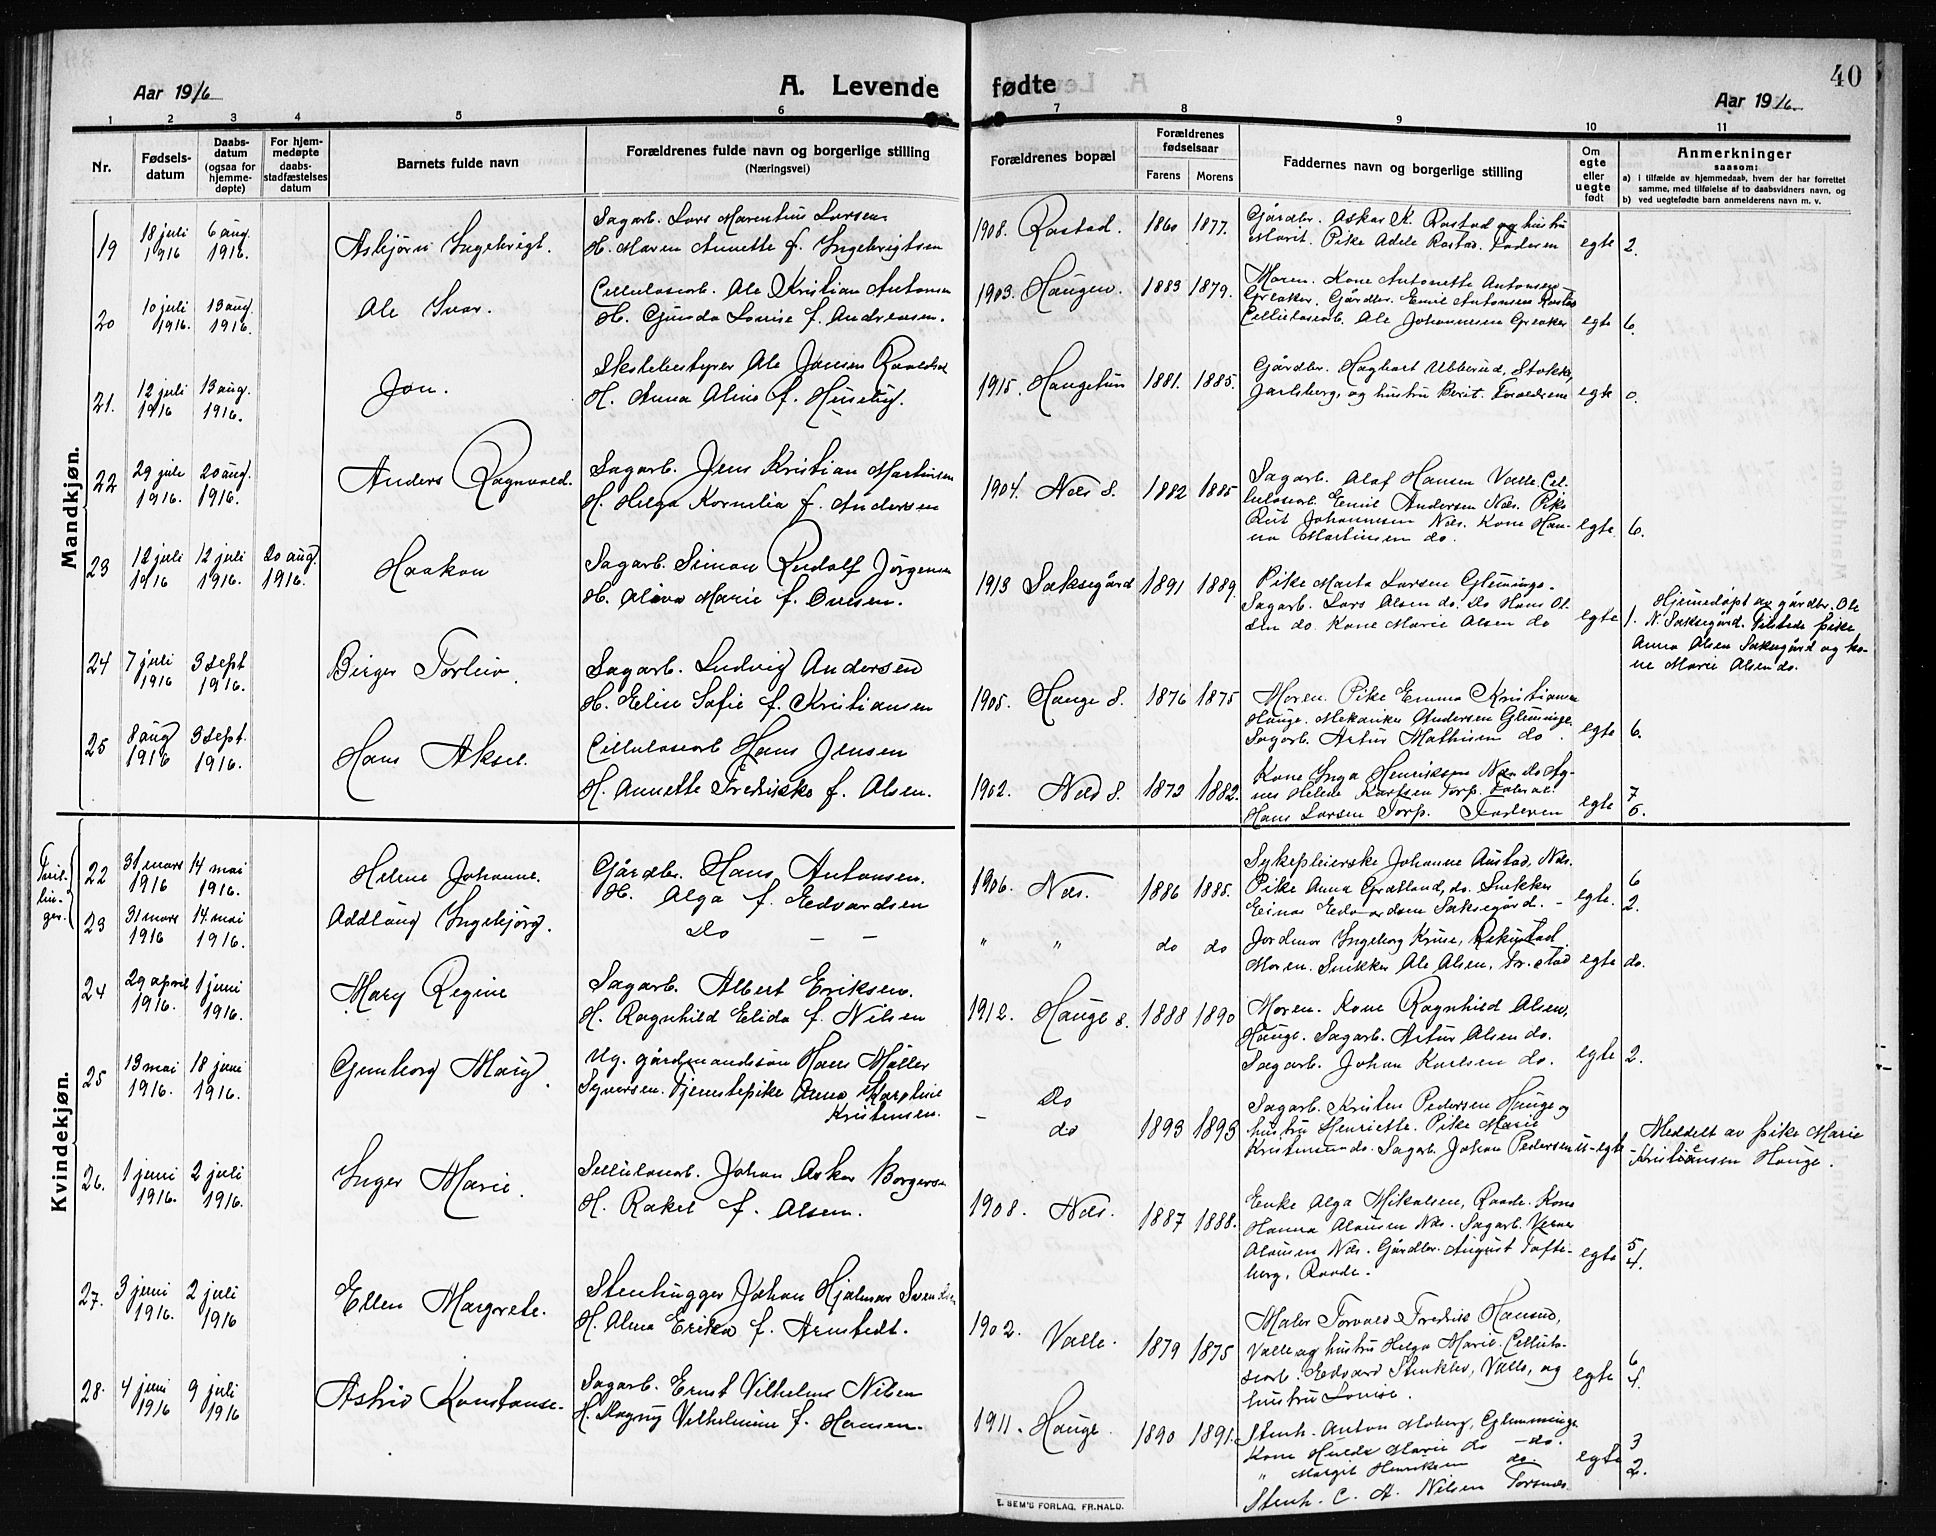 Aar 1916
A. Levende fødte
40
Aar 1916
1 2 3 4 5 6 7 8 9 10 11
Nr.
Fødsels-
datum
Daabs-
datum
(ogsaa for
hjemme-
døpte)
For hjem-
medøpte
daabs-
stadfæstelses
datum
Barnets fulde navn
Forældrenes fulde navn og borgerlige stilling
(Næringsvei)
Forældrenes bopæl
Forældrenes
fødselsaar
Farens
Morens
Faddernes navn og borgerlige stilling
Om
egte
eller
uegte
født
Anmerkninger
saasom:
a) i tilfælde av hjemmedaab, hvem der har forrettet
samme, med tilføielse af to daabsvidners navn, og
b) ved uegtefødte barn anmelderens navn m. v.
Mandkjøn.
19
18 juli
1916
6 aug.
1916.
Asbjørn Ingebrigt.
Sagarb. Lars Marentius Larsen
H. Maren Annette f. Ingebrigtsen
1908. Rostad. 1860 1877.
Gårdbr. Oskar K. Rostad og hustru
Marit. Pike Adele Rostad. Faderen
egte 2.
20
10 juli
1916.
13 aug.
1916.
Ole Ivar.
Cellulosearb. Ole Kristian Antonsen
H. Gunda Lovise f. Andreasen.
1903. Haugen. 1883 1879.
Moren. Kone Antonette Antonsen
Greaker. Gårdbr. Emil Antonsen Rostad
Cellulosearb. Ole Johannesen Greaker
egte 6.
21.
12 juli
1916
13 aug.
1916.
Jon.
Skolebestyrer Ole Jonsen
H. Anna Oline f.
1915. Haugetun 1881. 1885.
Gårdbr. Hagbart Ubberud, Stokke,
Jarlsberg, og hustru Berit. Foreldrene
egte 0.
22
29 juli
1916.
20 aug.
1916.
Anders Ragnvald.
Sagarb. Jens Kristian Martinsen
H. Helga Kornelia f. Andersen
1904. Nes S. 1882 1885
Sagarb. Olaf Hansen Valle. Cel-
lulosearb. Emil Andersen Næs. Pike
Rut Johannesen Næs. Kone Han-
na Martinsen do.
egte 6.
23
12 juli
1916
12 juli
1916.
20 aug.
1916.
Haakon
Sagarb. Simon Rudolf Jørgensen
H. Olava Marie f. Ovesen.
1913 Sæksegård 1891 1889.
Pike Marta Larsen Glemminge.
Sagarb. Lars Olsen do. Do Hans Ol-
sen do. Kone Marie Olsen do
egte 1.
Hjemmedøpt av gårdbr. Ole
N. Sæksegård. Tilstede pike
Anna Olsen Sæksegård og ko-
ne Marie Olsen do.
24
7 juli
1916
3 sept
1916.
Birger Torleiv.
Sagarb. Ludvig Andersen
H. Elise Sofie f. Kristiansen
1905. Hauge S. 1876 1875
Moren. Pike Emma Kristiansen
Hauge. Mekaniker Andersen Glemminge.
Sagarb. Artur Mathisen do.
egte 6.
25
8 aug
1916
3 sept.
1916.
Hans Aksel.
Cellulosearb Hans Jensen
H. Annette Fredrikke f. Olsen.
1902. Næs S. 1872 1882.
Kone Inga Henriksen Næs. Do Ag-
nes Helene Karlsen Torp.
Hans Larsen Torp. Faderen
egte 7
6.
Kvindekjøn.
Tvil-
lin-
ger.
22
31 mars
1916
14 mai
1916.
Helene Johanne.
Gårdbr. Hans Antonsen.
H. Olga f. Edvardsen
1906. Næs. 1886 1885.
Sykepleierske Johanne Austad, Næs.
Pike Anna Græsland, do. Snekker
Einar Edvardsen Sæksegård. -
egte. 6
2.
23
31 mars
1916
14 mai
1916.
Addlaug Ingebjørg.
do - -
" " do do
Jordmor Ingeborg Kruse,
Moren. Snekker Ole Olsen, Fr.stad
egte do.
24
29 april
1916.
1 juni
1916.
Mary Regine
Sagarb. Albert Eriksen.
H. Ragnhild Elida f. Nilsen
1912. Hauge S. 1888 1890
Moren. Kone Ragnhild Olsen,
Hauge. Sagarb. Artur Olsen do.
Sagarb. Johan Karlsen do.
egte 2.
25
13 mai
1916.
18 juni
1916.
Gunborg Mary.
Ug. gårdmandssøn Hans Møller
Syversen. Tjenestepike Anna Karoline
Kristensen.
- Do
do 1893 1893
Sagarb. Kristen Pedersen Hauge og
hustru Henriette. Pike Marie
Kristensen do. Sagarb. Johan Pedersen
u-egte
Meddelt av pike Marie
Kristiansen Hauge.
26.
1 juni
1916.
2 juli
1916.
Inger Marie.
Cellulosearb. Johan Oskar Borgersen
H. Rakel f. Olsen.
1908. Næs. 1887 1888.
Enke Olga Mikalsen, Raade. Kone
Hanna Olausen Næs. Sagarb. Verner
Olausen Næs. Gårdbr. August Tofte-
berg, Raade.
egte 5
4.
27.
3 juni
1916.
2 juli
1916
Ellen Margrete.
Stenhugger Johan Hjalmar Svendsen
H. Alma Erika f. Arnstedt.
1902. Valle. 1879 1875
Maler Torvald Fredrik Hansen,
Valle og hustru Helga Marie. Cellulo-
searb. Edvard Stenklev, Valle, og
hustru Lovise.
egte 6
4.
28.
4 juni
1916
9 juli
1916
Astrid Konstanse.
Sagarb. Ernst Vilhelm Nilsen
H. Dagny Vilhelmine f. Hansen.
1911. Hauge. 1890 1891.
Stenh. Anton Moberg, Glemminge
Kone Hulda Marie do - do.
" Margit Henriksen do.
Stenh. C. A. Nilsen Torsnes
egte 3
2.
E. SEM'S FORLAG, FR.HALD.